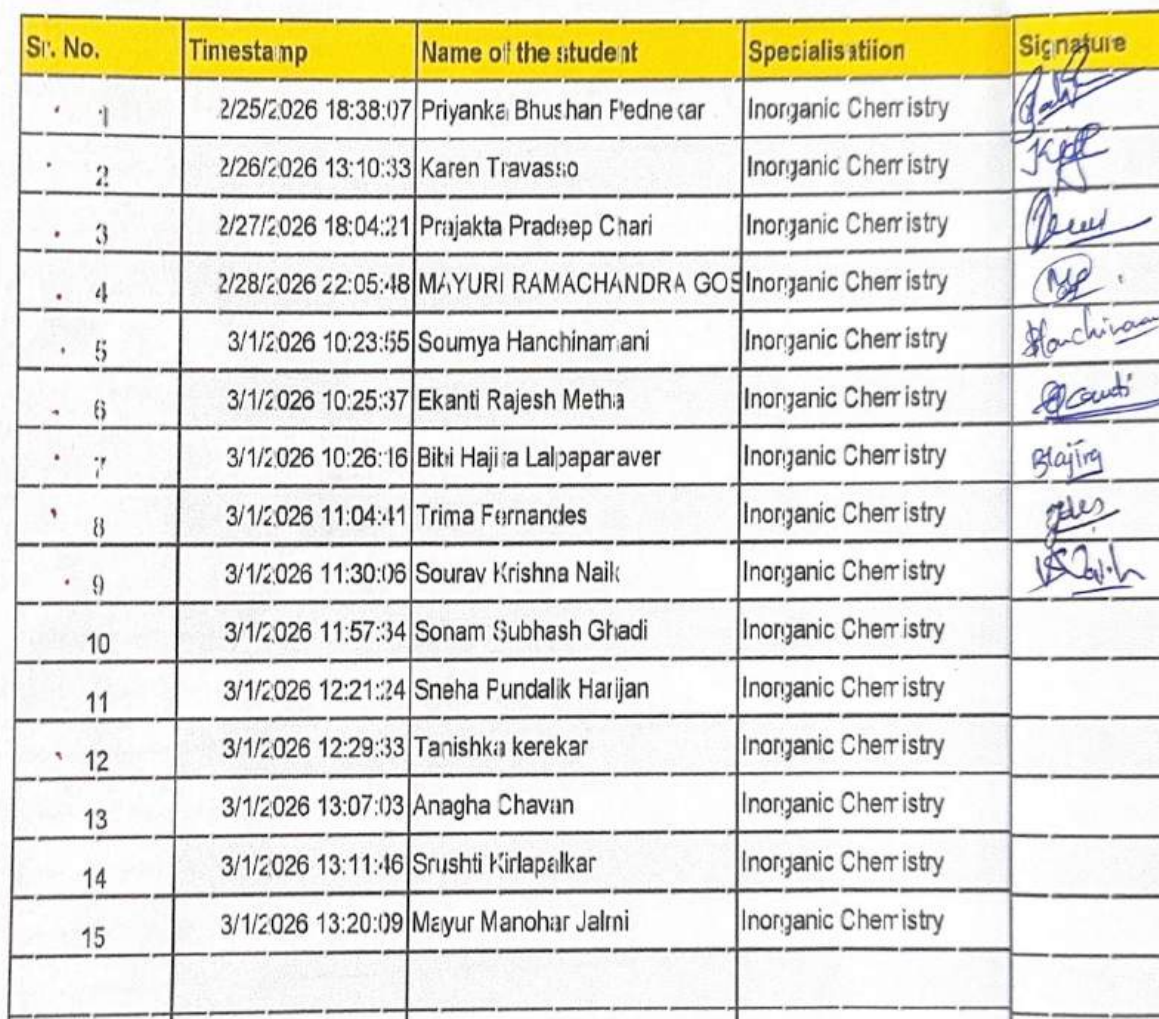 Sr. No. Timestamp Name of the student Specialisatiion Signature
1 2/25/2026 18:38:07 Priyanka Bhushan Pednekar Inorganic Chemistry
2 2/26/2026 13:10:33 Karen Travasso Inorganic Chemistry
3 2/27/2026 18:04:21 Prajakta Pradeep Chari Inorganic Chemistry
4 2/28/2026 22:05:48 MAYURI RAMACHANDRA GOS Inorganic Chemistry
5 3/1/2026 10:23:55 Soumya Hanchinamani Inorganic Chemistry
6 3/1/2026 10:25:37 Ekanti Rajesh Metha Inorganic Chemistry
7 3/1/2026 10:26:16 Bibi Hajira Lalpapanaver Inorganic Chemistry BHajira
8 3/1/2026 11:04:41 Trima Fernandes Inorganic Chemistry
9 3/1/2026 11:30:06 Sourav Krishna Naik Inorganic Chemistry
10 3/1/2026 11:57:34 Sonam Subhash Ghadi Inorganic Chemistry
11 3/1/2026 12:21:24 Sneha Pundalik Harijan Inorganic Chemistry
12 3/1/2026 12:29:33 Tanishka kerekar Inorganic Chemistry
13 3/1/2026 13:07:03 Anagha Chavan Inorganic Chemistry
14 3/1/2026 13:11:46 Srushti Kirlapalkar Inorganic Chemistry
15 3/1/2026 13:20:09 Mayur Manohar Jalmi Inorganic Chemistry